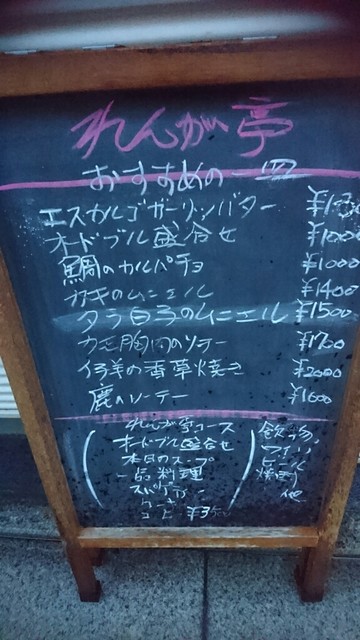 れんが亭
おすすめの一皿
エスカルゴガーリックバター
オードブル盛合せ ¥1000
鯛のカルパチョ ¥1000
カキのムニエル ¥1400
タラ白子のムニエル ¥1500
カモ胸肉のソテー ¥1700
仔羊の香草焼き ¥2000
鹿のソーテー ¥1600
れんが亭コース
オードブル盛合せ
本日のスープ
一品料理
飲物
ワイン
ビール
焼酎
他